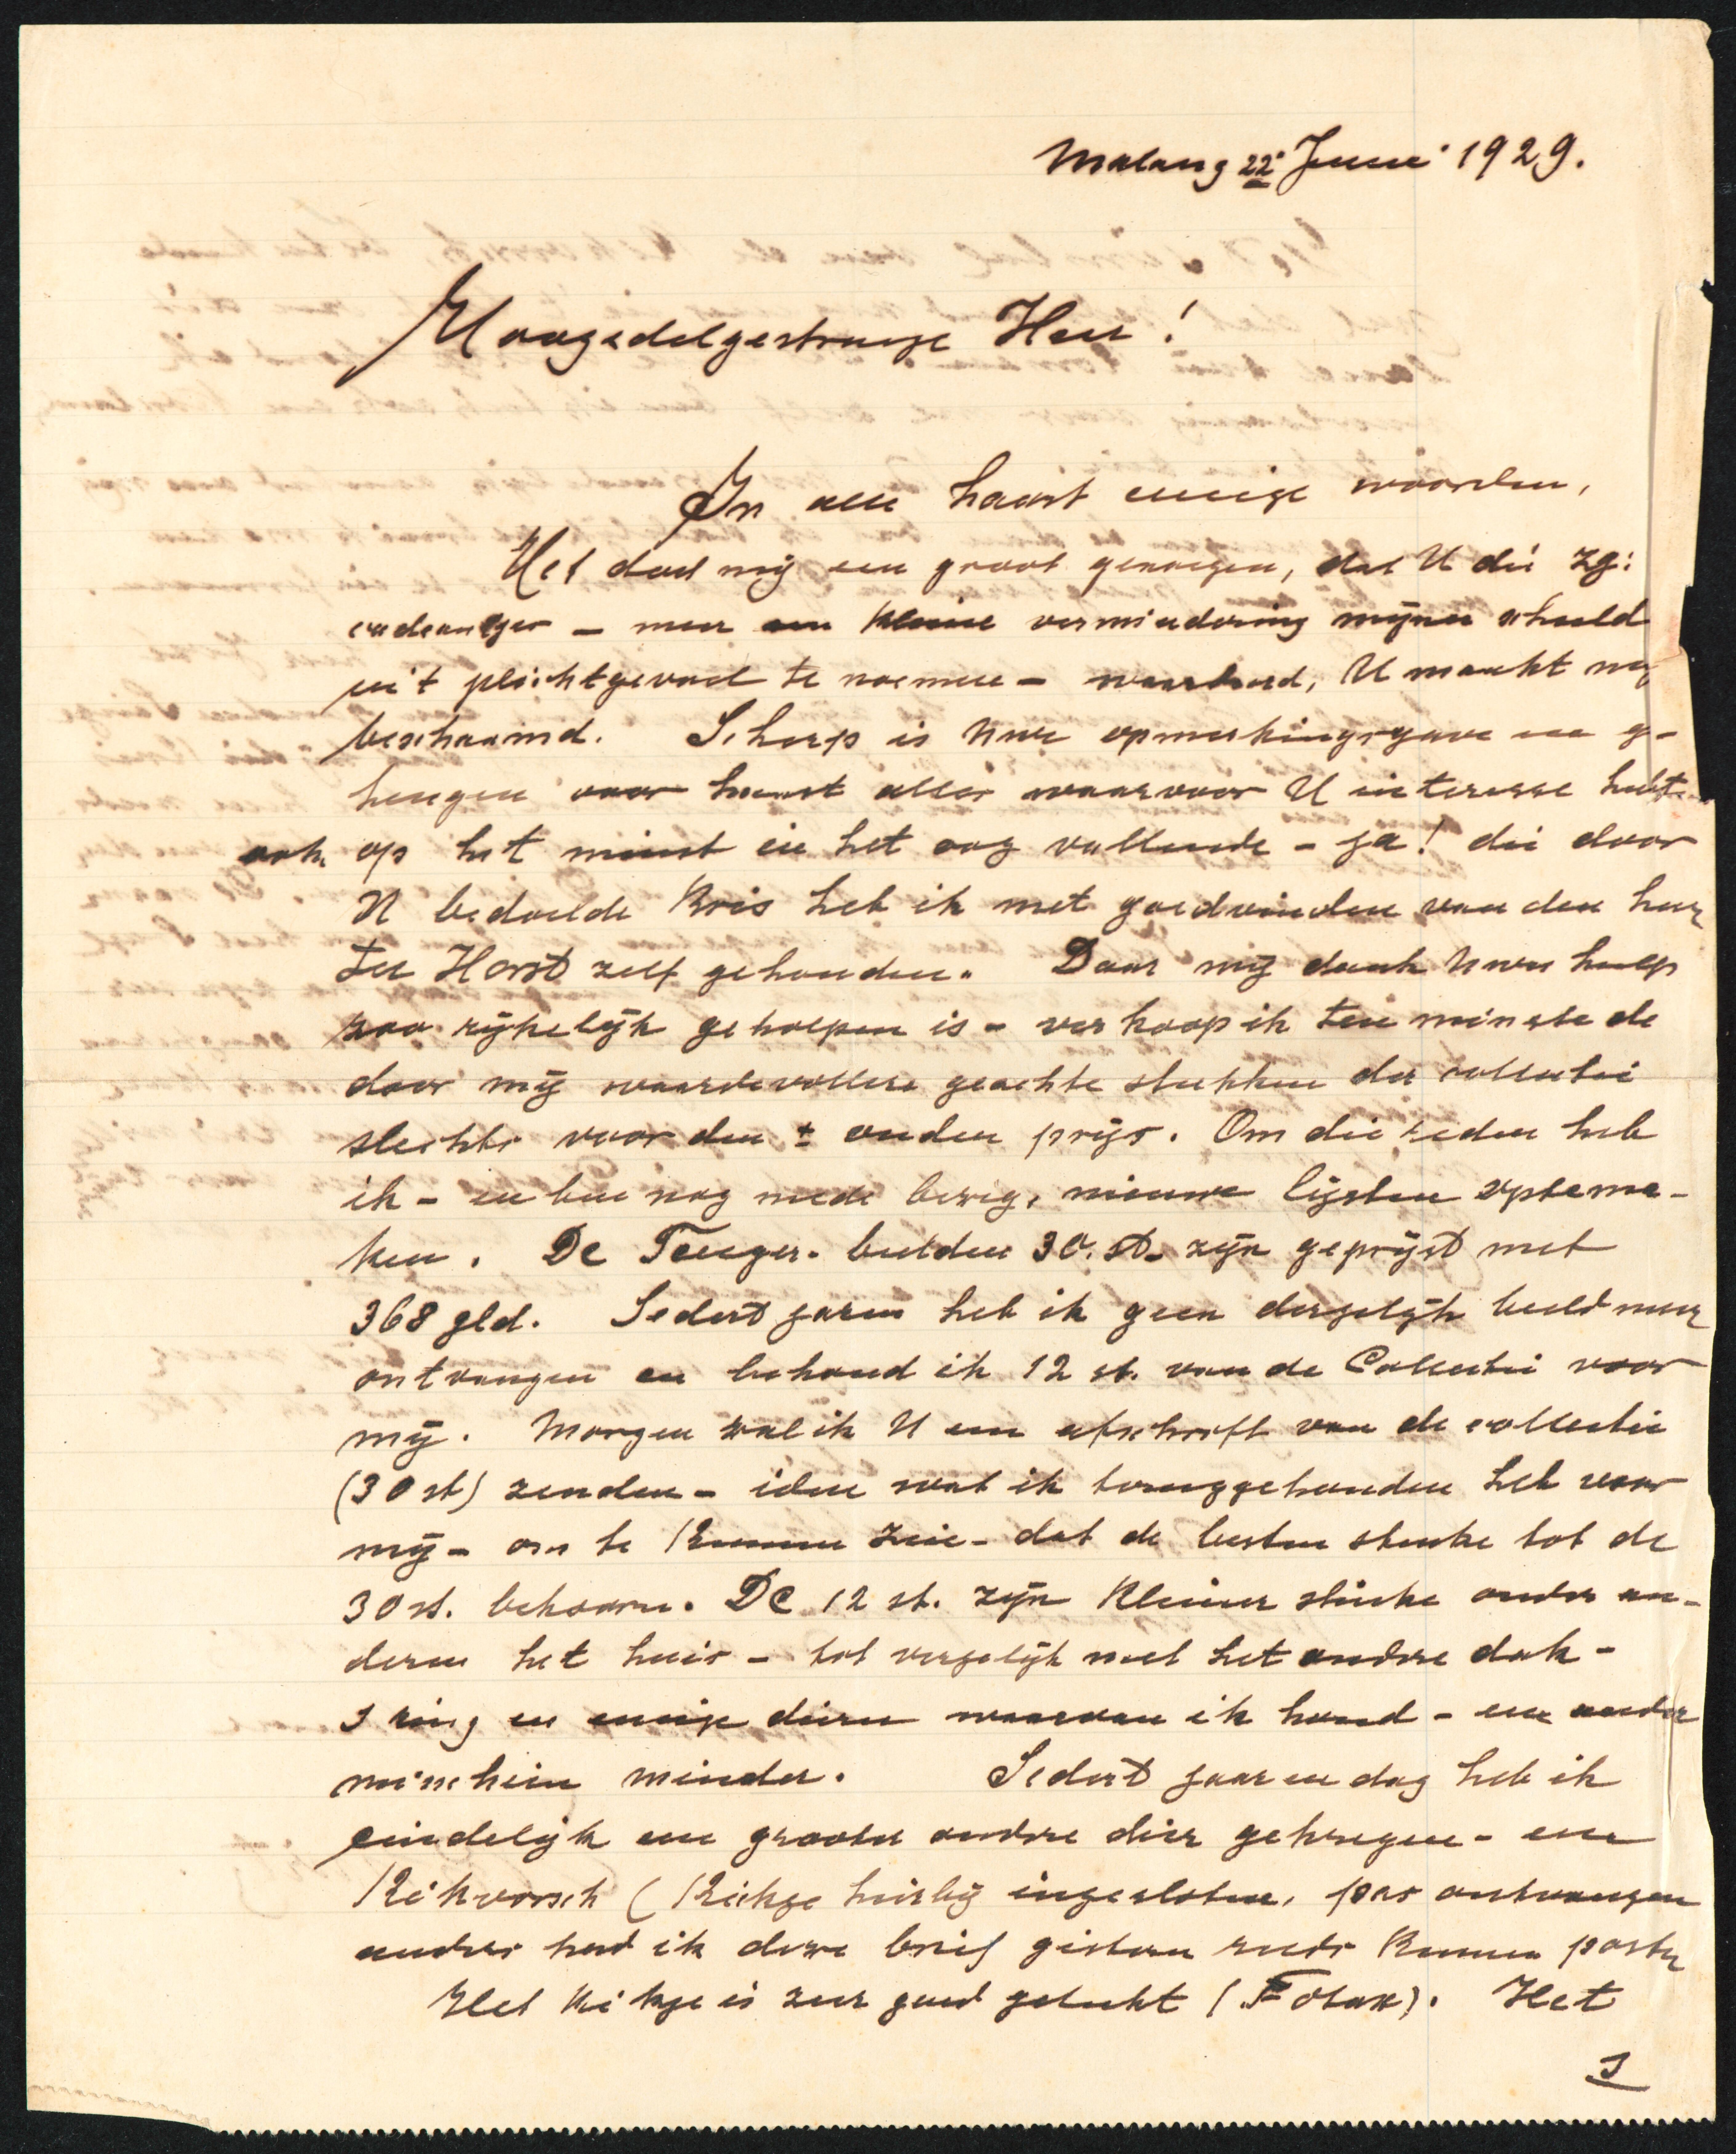 Malang 22 Juni 1929.
Hoogedelgestrenge Heer!
In alle haast eenige woorden,
Het doet mij een groot genoegen, dat U die zg:
cadeautjes – meer een kleine vermindering mijner schuld
uit plichtgevoel te noemen – waardeerd, U maakt mij
beschaamd. Scherp is Uwe opmerkingsgave en ge-
heugen voor haast alles waarvoor U interesse hebt
ook op het minst in het oog vallende – ja! die door
U bedoelde Kris heb ik met goedvinden van den heer
ter Horst zelf gehouden. Daar mij dank Uwer hulp
zoo rijkelijk geholpen is – verkoop ik ten minste de
door mij waardevollere geachte stukken der collectie
slechts voor den ± ouden prijs. Om die reden heb
ik – en ben nog mede bezig, nieuwe lijsten optema-
ken. De Tengger-beelden 30. st. zijn geprijst met
368 gld. Sedert jaren heb ik geen dergelijk beeld meer
ontvangen en behoud ik 12 st. van de Collectie voor
mij. Morgen zal ik U een afschrift van de collectie
(30 st) zenden – idem wat ik teruggehouden heb voor
mij – om te kunnen zien – dat de besten stuke tot de
30 st. behooren. De 12 st. zijn kleiner stuke onder an-
deren het huis – tot vergelijk met het andere dak –
1 ring en eenige dieren waarvan ik houd – een ander
misschien minder. Sedert jaar en dag heb ik
eindelijk een grooter andere dier gekregen – een
Kikvorsch (Kiekje hierbij ingesloten, pas ontvangen
anders had ik deze brief gisteren reeds kunnen posten
Het kikje is zeer goed gelukt (Fotax). Het
1